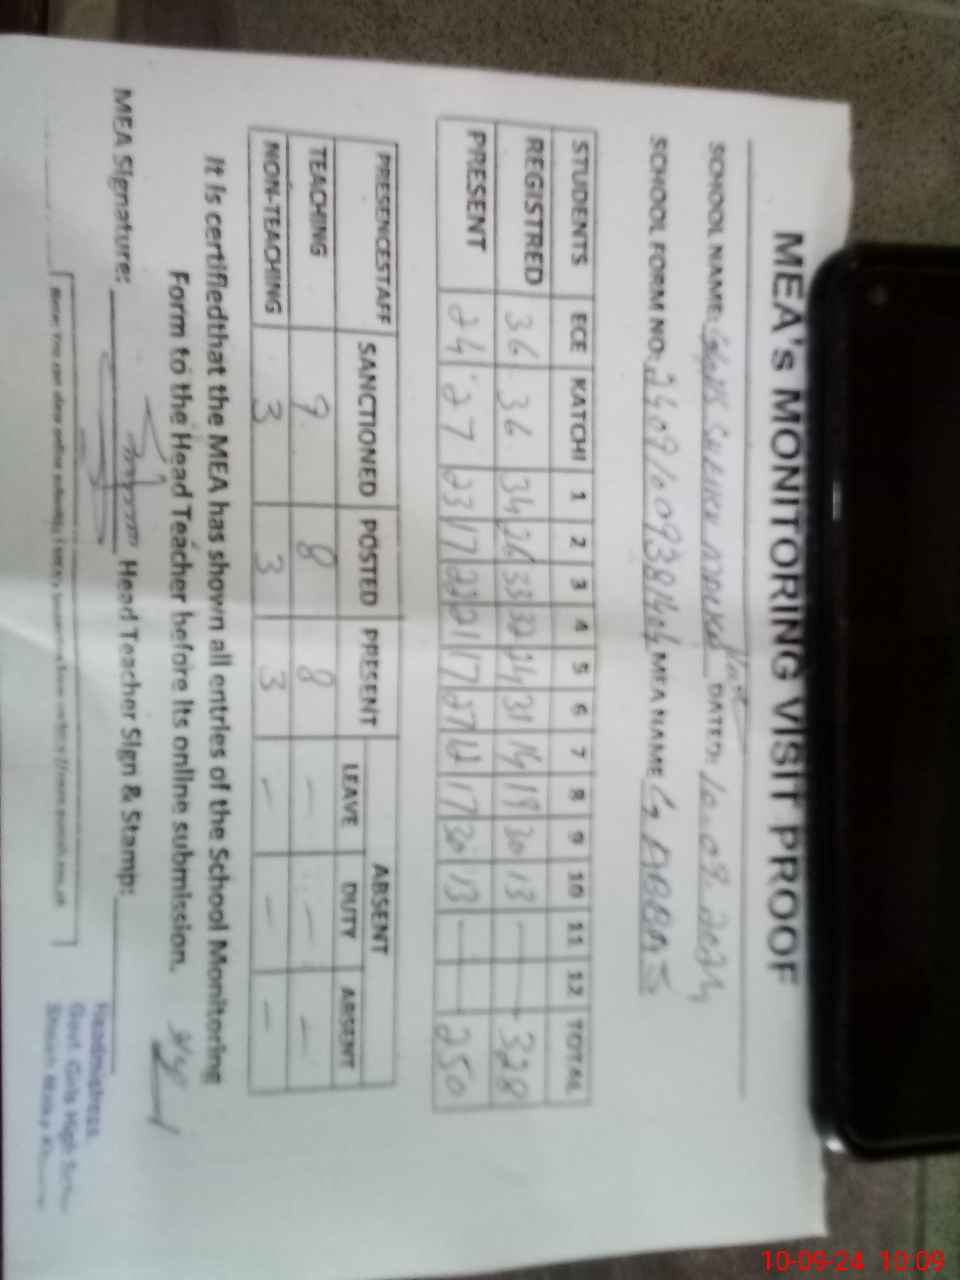 MEA's MONITORING VISIT PROOF
SCHOOL NAME: DATED: 10-09-2024
SCHOOL FORM NO: MEA NAME G ABBAS
STUDENTS ECE KATCHI 1 2 3 4 5 6 7 8 9 10 11 12 TOTAL
REGISTRED 36 36 34 26 33 32 24 31 14 19 30 13 328
PRESENT 24 27 23 17 22 21 17 27 12 17 30 13 250
PRESENCESTAFF SANCTIONED POSTED PRESENT ABSENT
LEAVE DUTY ABSENT
TEACHING 9 8 8 - - -
NON-TEACHING 3 3 3 - - -
It is certifiedthat the MEA has shown all entries of the School Monitoring
Form to the Head Teacher before its online submission.
MEA Signature: Head Teacher Sign & Stamp:
Headmistress
Govt. Girls High
10-09-24 10:09